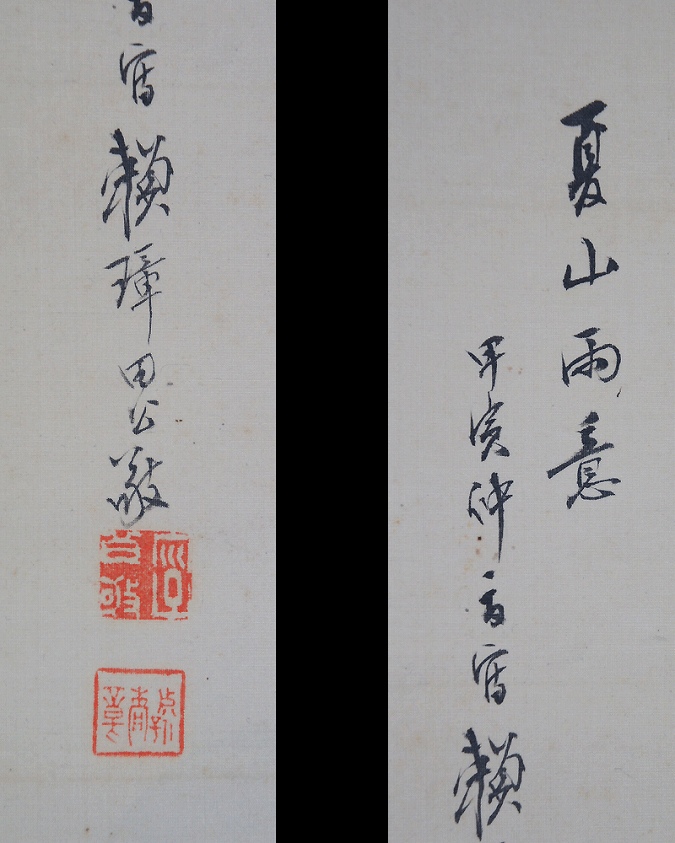 夏山雨意
甲寅仲夏寫賴
夏寫賴璋田公敬